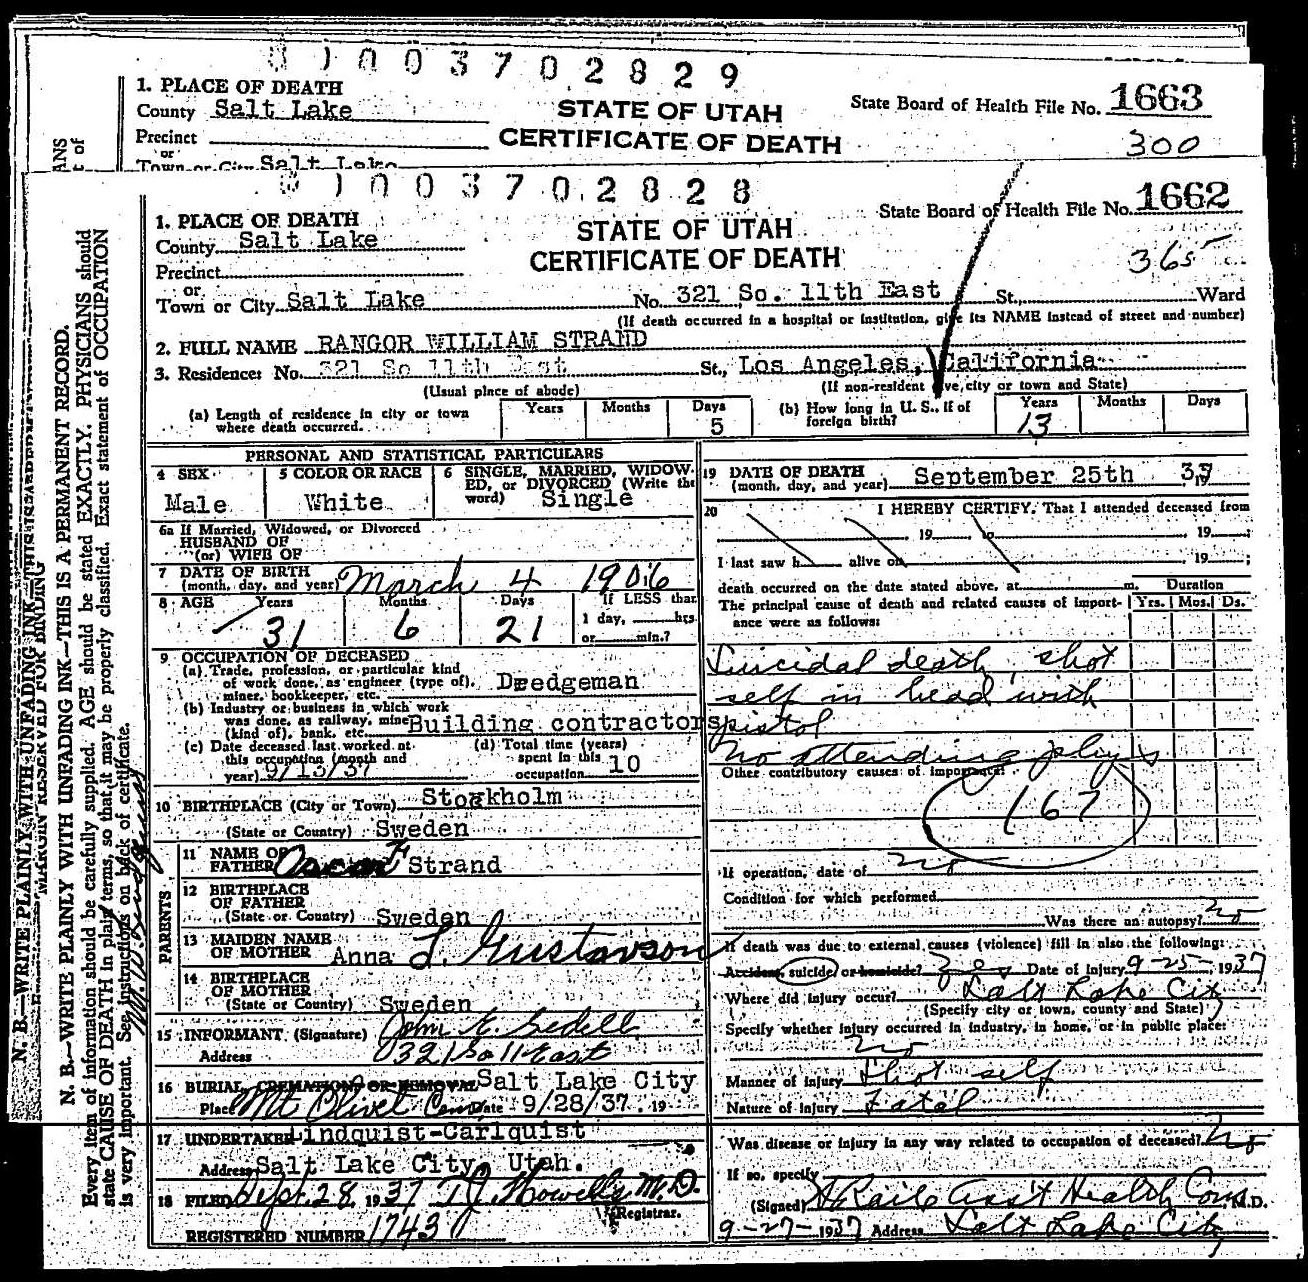 8100370 2829
1. PLACE OF DEATH
County Salt Lake
STATE OF UTAH
State Board of Health File No. 1663
Precinct
CERTIFICATE OF DEATH
300
or
Town or City Salt Lake
8100370 2828
1. PLACE OF DEATH
County Salt Lake
STATE OF UTAH
State Board of Health File No. 1662
Precinct
CERTIFICATE OF DEATH
365
or
Town or City Salt Lake No. 321 So. 11th East St., Ward
(If death occurred in a hospital or institution, give its NAME instead of street and number)
2. FULL NAME RANGOR WILLIAM STRAND
3. Residence: No. 321 So 11th East St., Los Angeles, California
(Usual place of abode) (If non-resident give city or town and State)
(a) Length of residence in city or town where death occurred. Years Months Days 5
(b) How long in U. S., if of foreign birth? Years 13 Months Days
PERSONAL AND STATISTICAL PARTICULARS
4 SEX Male
5 COLOR OR RACE White
6 SINGLE, MARRIED, WIDOWED, or DIVORCED (Write the word) Single
6a If Married, Widowed, or Divorced
HUSBAND OF
(or) WIFE OF
7 DATE OF BIRTH
(month, day, and year) March 4 1906
8 AGE Years 31 Months 6 Days 21 If LESS than 1 day, hrs or min.?
9 OCCUPATION OF DECEASED
(a) Trade, profession, or particular kind
of work done, as engineer (type of),
miner, bookkeeper, etc. Dredgeman
(b) Industry or business in which work
was done, as railway, mine
(kind of), bank, etc. Building contractors
(c) Date deceased last worked at
this occupation (month and
year) 9/13/37
(d) Total time (years)
spent in this
occupation 10
10 BIRTHPLACE (City or Town) Stockholm
(State or Country) Sweden
PARENTS
11 NAME OF
FATHER Oscar F Strand
12 BIRTHPLACE
OF FATHER
(State or Country) Sweden
13 MAIDEN NAME
OF MOTHER Anna L. Gustavson
14 BIRTHPLACE
OF MOTHER
(State or Country) Sweden
15 INFORMANT (Signature) John E. Sedell
Address 321 So 11 East
16 BURIAL, CREMATION, OR REMOVAL Salt Lake City
Place Mt Olivet Cem Date 9/28/37. 19
17 UNDERTAKER Lindquist-Carlquist
Address Salt Lake City, Utah.
18 FILED Sept 28, 1937 T J Howells M.D.
Registrar.
REGISTERED NUMBER 1743
19 DATE OF DEATH
(month, day, and year) September 25th 37
20 I HEREBY CERTIFY, That I attended deceased from
, 19 , to , 19 ;
I last saw h alive on , 19 ;
death occurred on the date stated above, at m. Duration
The principal cause of death and related causes of importance were as follows: Yrs. Mos. Ds.
Suicidal death, shot
self in head with
pistol
No attending phys
Other contributory causes of importance:
167
If operation, date of no
Condition for which performed
Was there an autopsy? no
If death was due to external causes (violence) fill in also the following:
Accident, suicide or homicide? Date of injury 9-25-, 1937
Where did injury occur? Salt Lake City
(Specify city or town, county and State)
Specify whether injury occurred in industry, in home, or in public place:
no
Manner of injury Shot self
Nature of injury Fatal
Was disease or injury in any way related to occupation of deceased? no
If so, specify
(Signed) Ass't Health Com, M.D.
9-27-1937 Address Salt Lake City
N. B.—WRITE PLAINLY WITH UNFADING INK
MARGIN RESERVED FOR BINDING
N. B.—WRITE PLAINLY WITH UNFADING INK—THIS IS A PERMANENT RECORD.
Every item of information should be carefully supplied. AGE should be stated EXACTLY. PHYSICIANS should
state CAUSE OF DEATH in plain terms, so that it may be properly classified. Exact statement of OCCUPATION
is very important. See instructions on back of certificate.